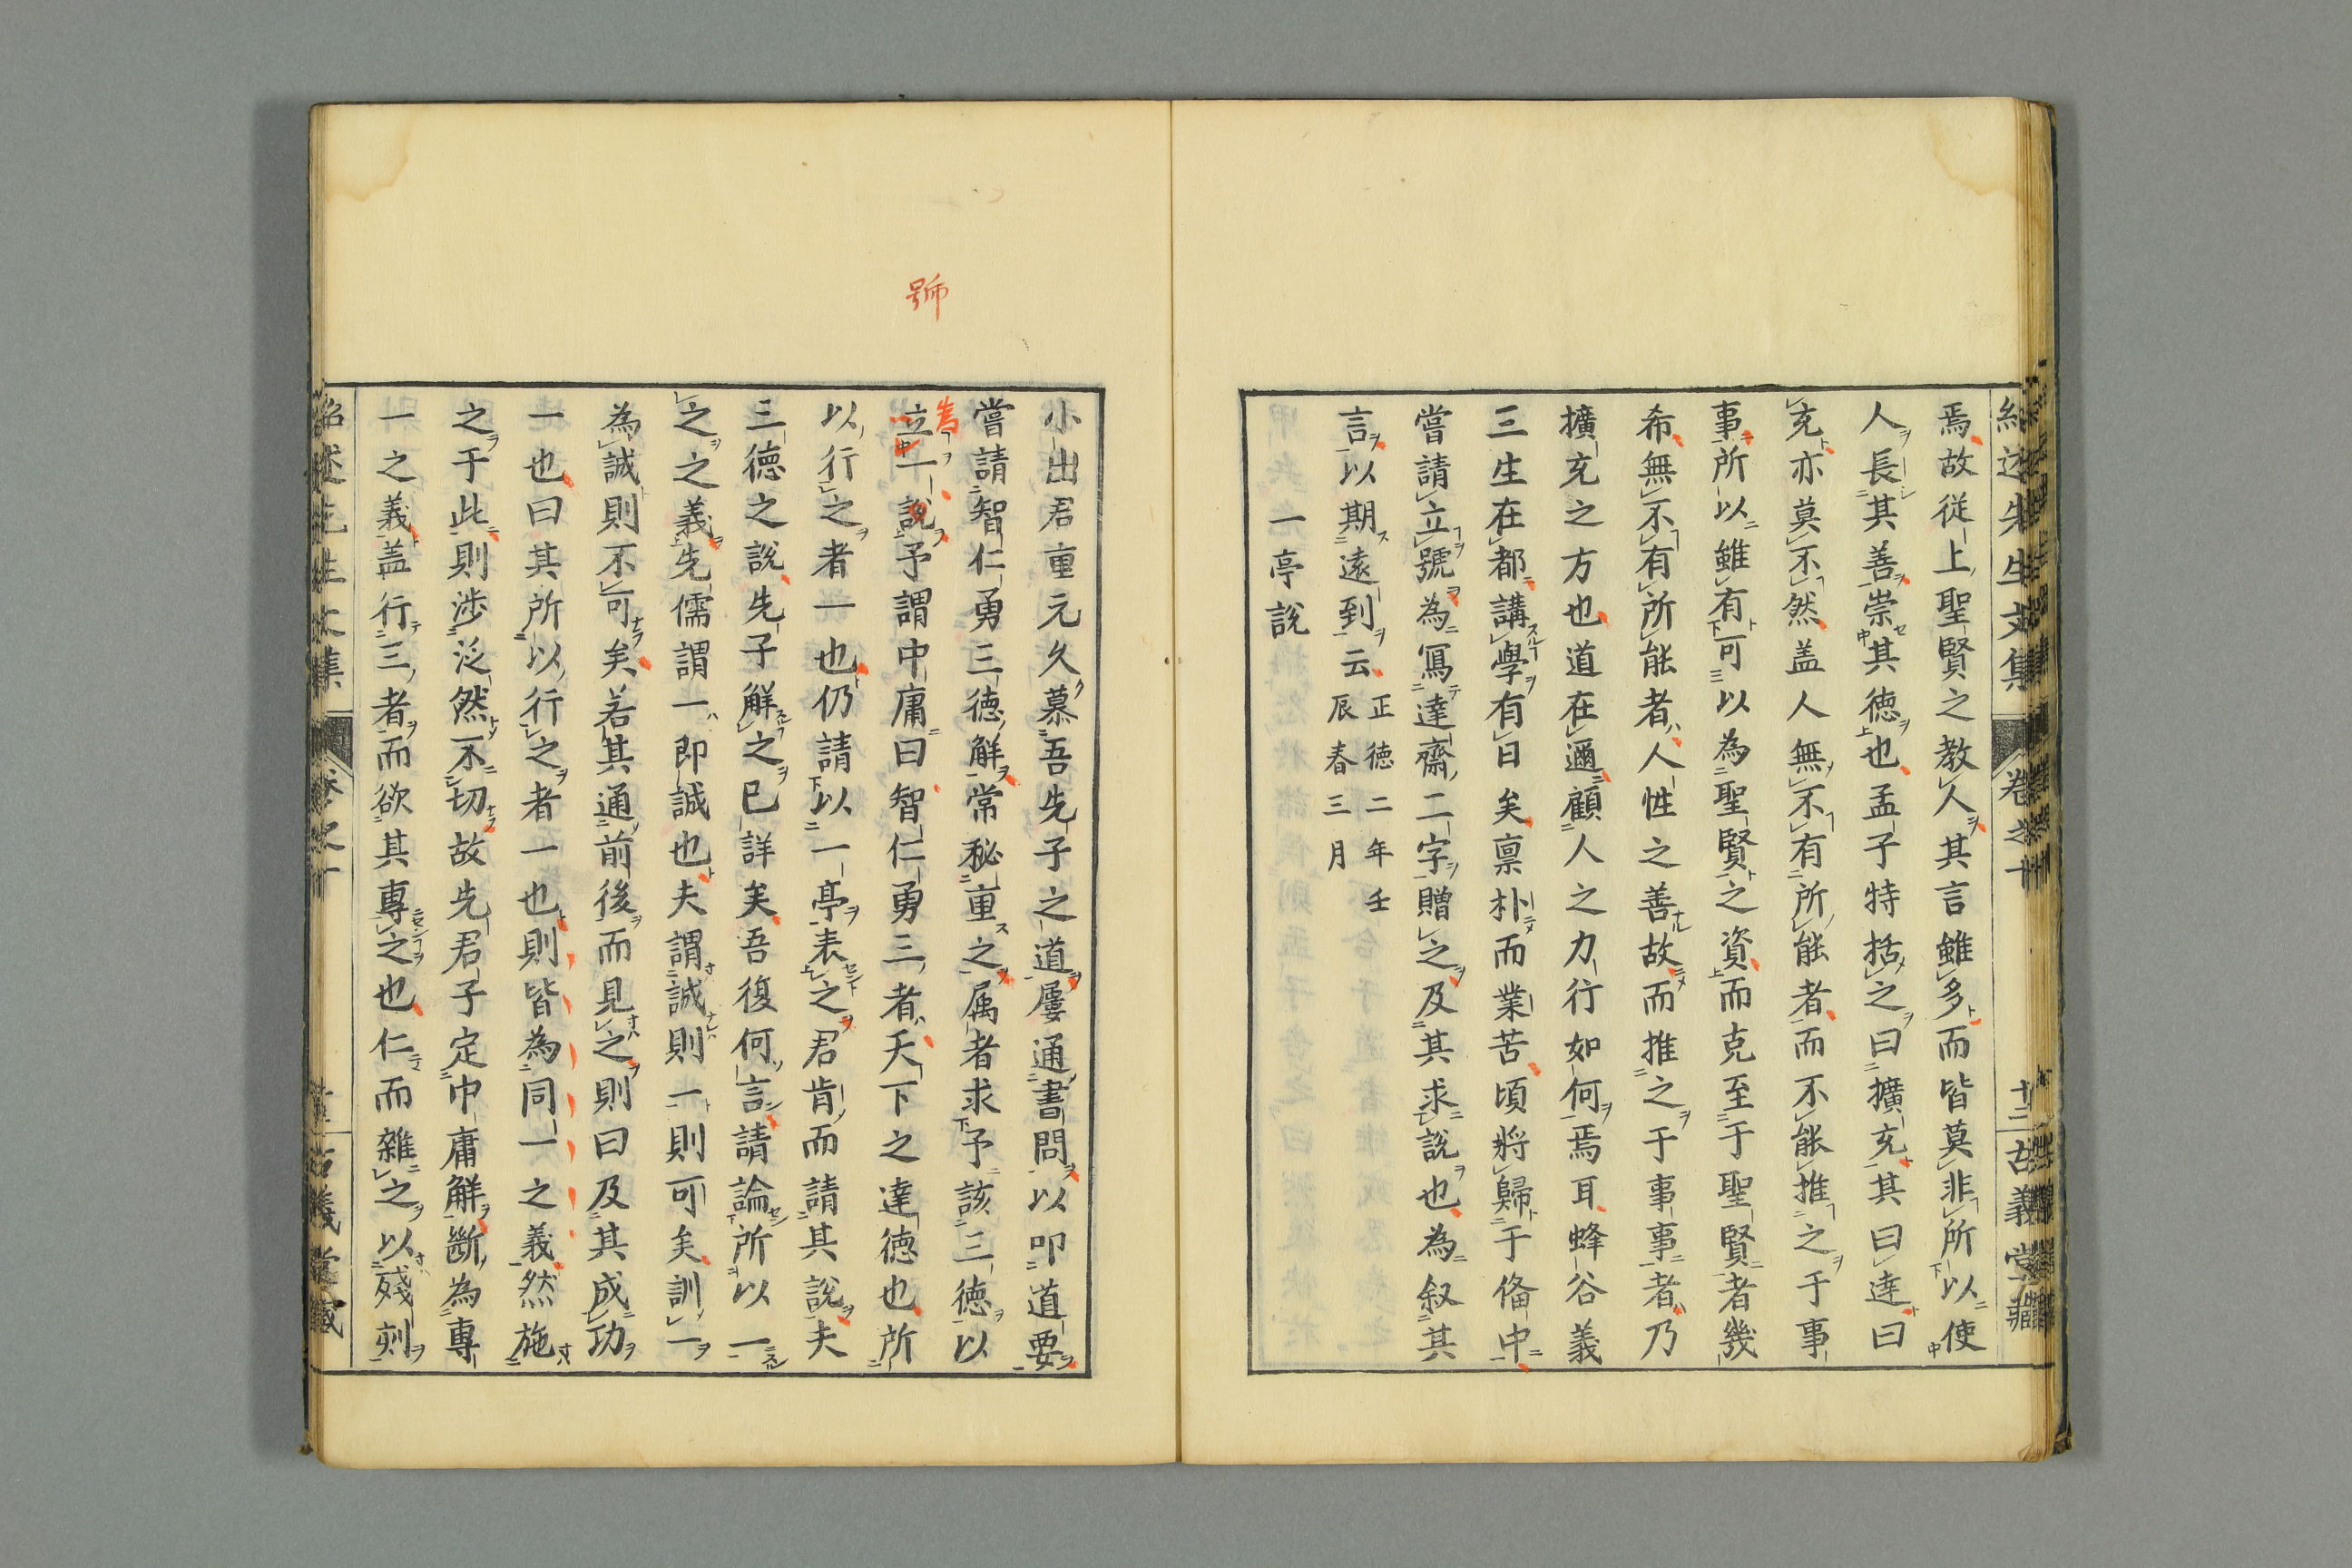 紹述先生文集 卷之十 十二 古義堂藏
焉故従上聖賢之教人其言雖多而皆莫非所以使
人長其善崇其徳也孟子特括之曰擴充其曰達曰
充亦莫不然盖人無不有所能者而不能推之于事
事所以雖有可以為聖賢之資而克至于聖賢者幾
希無不有所能者人性之善故而推之于事事者乃
擴充之方也道在邇顧人之力行如何焉耳蜂谷義
三生在都講學有日矣禀朴而業苦頃將歸于俻中
嘗請立號為寫達齋二字贈之及其求說也為叙其
言以期遠到云 正徳二年壬
辰春三月
一亭說
小出君重元久慕吾先子之道屢通書問以叩道要
嘗請智仁勇三徳解常秘重之属者求予該三徳以
為
號
立一說予謂中庸曰智仁勇三者天下之達徳也所
以行之者一也仍請以一亭表之君肯而請其說夫
三徳之說先子解之已詳矣吾復何言請論所以一
之之義先儒謂一即誠也夫謂誠則一則可矣訓一
為誠則不可矣若其通前後而見之則曰及其成功
一也曰其所以行之者一也則皆為同一之義然施
之于此則渉泛然不切故先君子定中庸解斷為專
一之義盖行三者而欲其專之也仁而雜之以殘刻
紹述先生文集 卷之十 古義堂藏